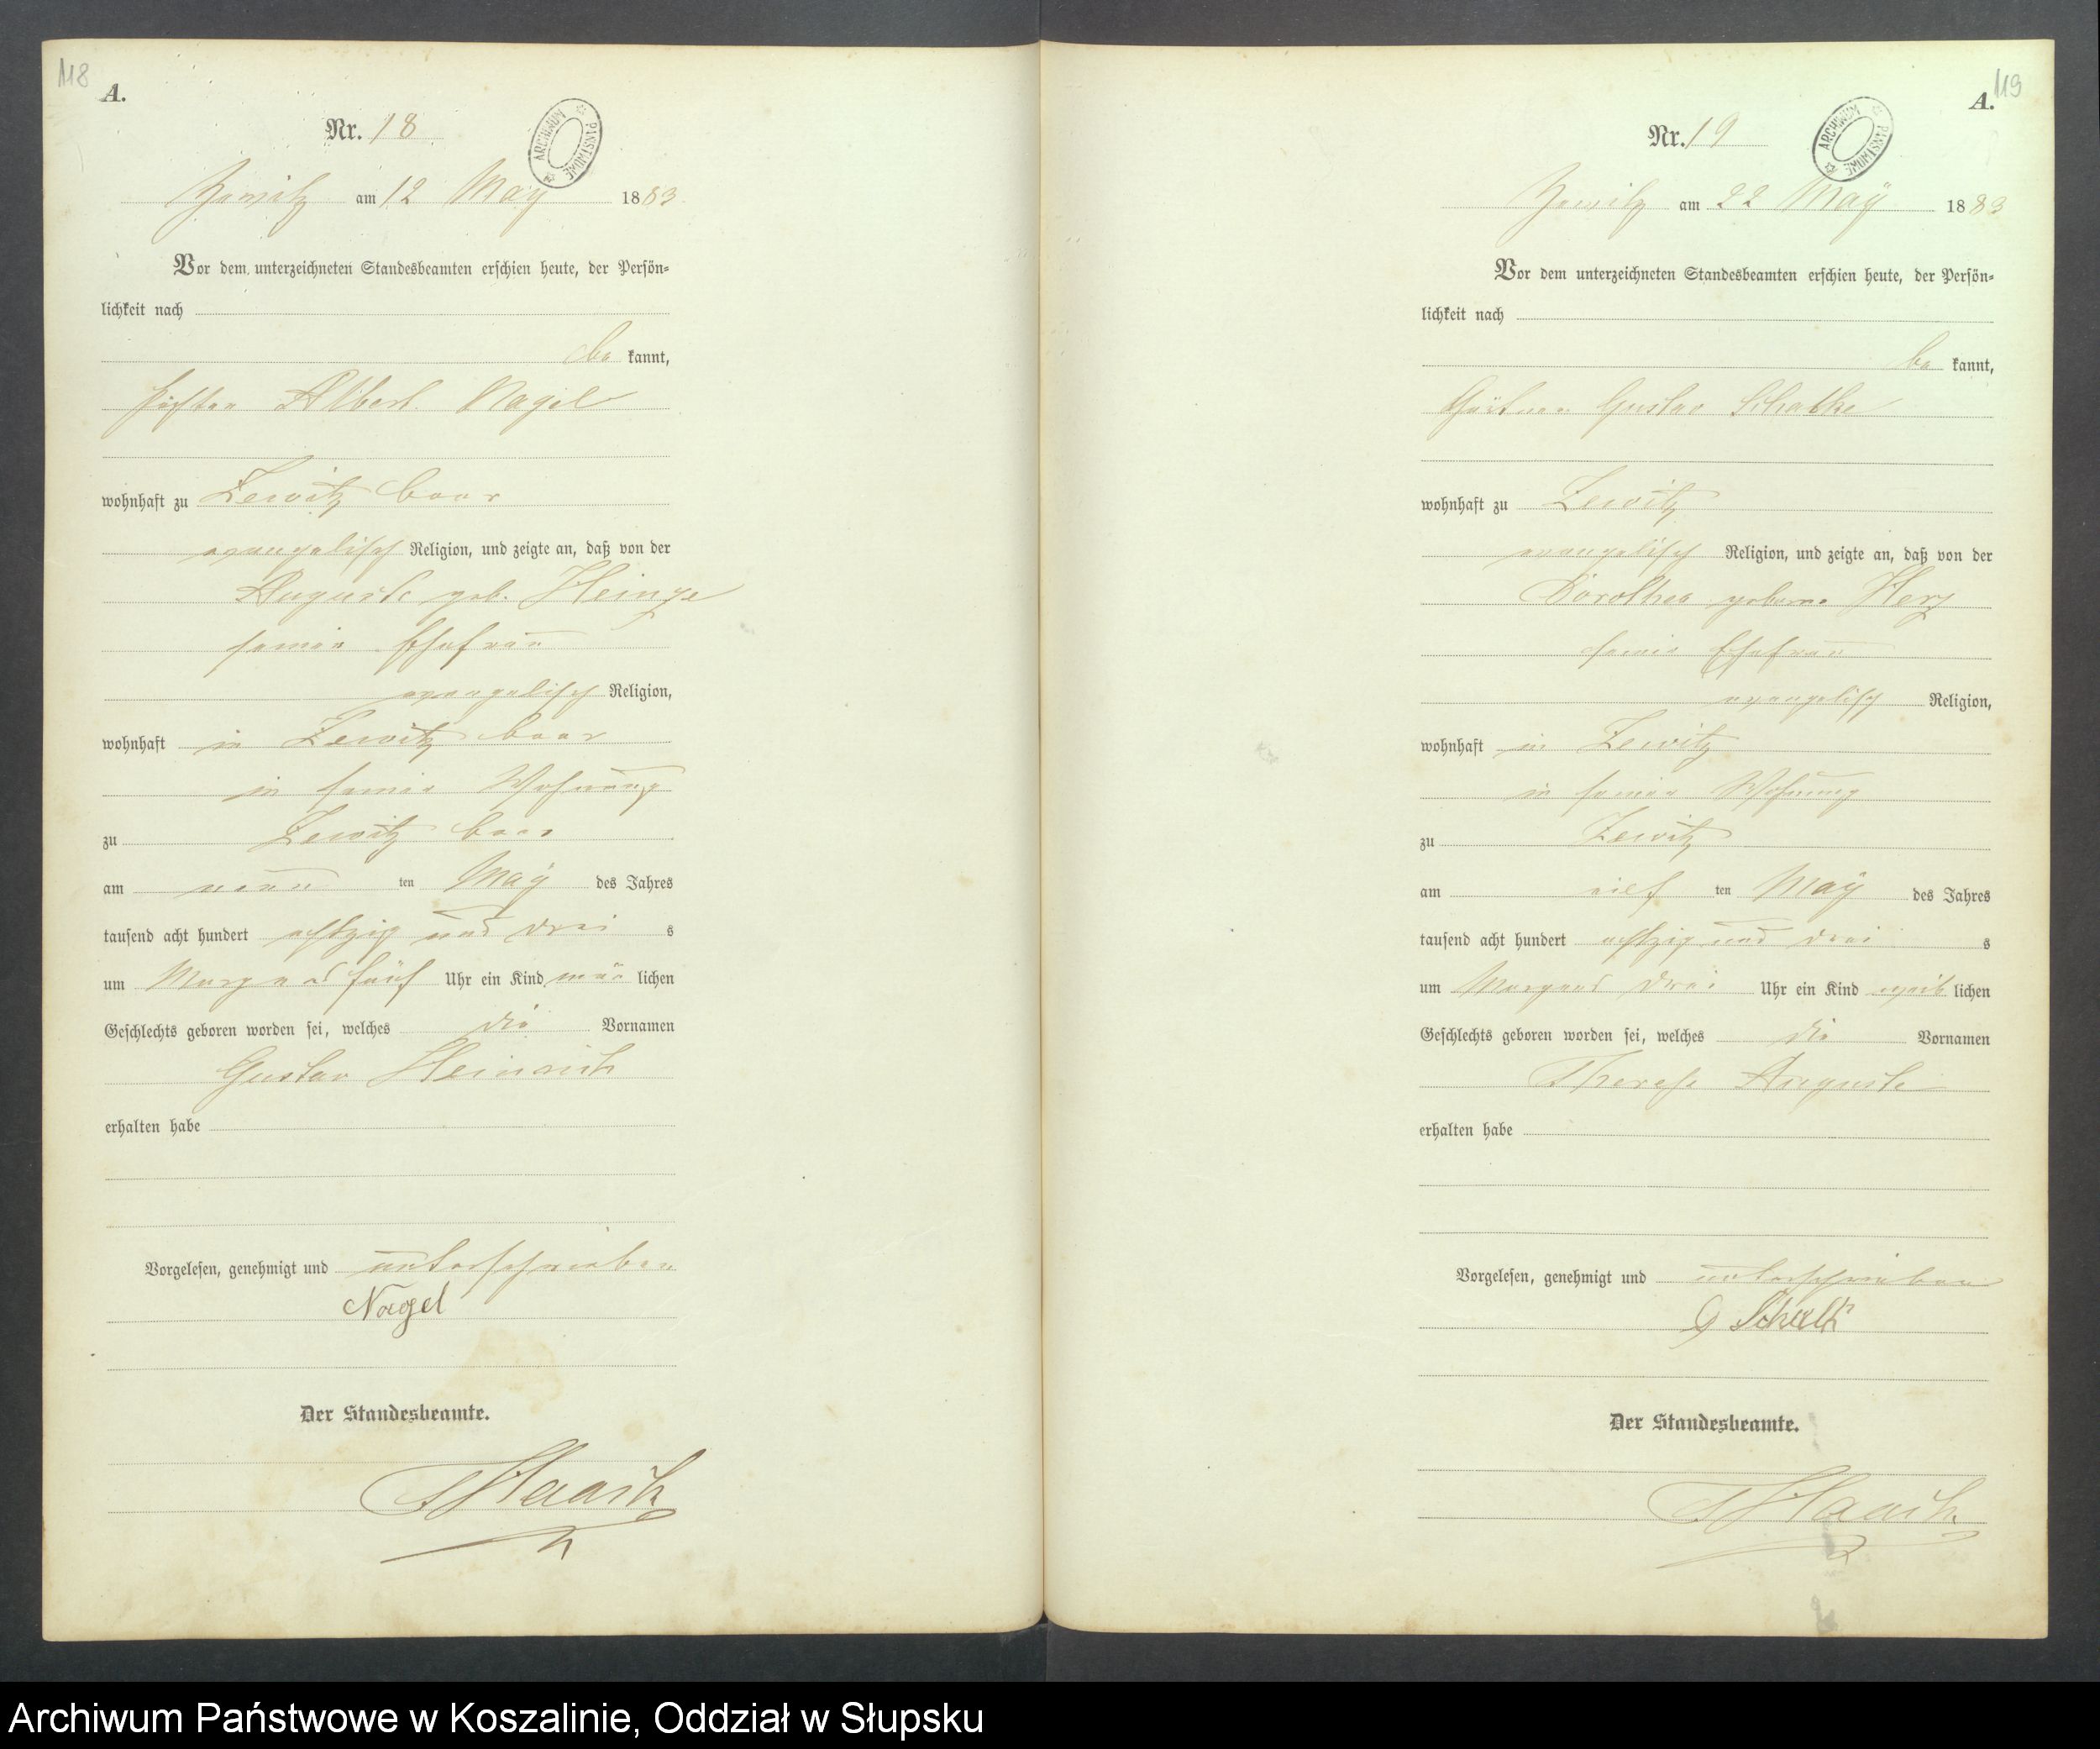 118
A.
Nr. 18
ARCHIWUM PAŃSTWOWE
Zewitz am 12 May 1883
Vor dem unterzeichneten Standesbeamten erschien heute, der Persön-
lichkeit nach
be kannt,
Albert Nagel
wohnhaft zu Zewitz
evangelisch Religion, und zeigte an, daß von der
Auguste geb. Heinze
seiner Ehefrau
evangelisch Religion,
wohnhaft in Zewitz
in seiner Wohnung
zu Zewitz
am neun ten May des Jahres
tausend acht hundert achtzig und drei s
um Morgens fünf Uhr ein Kind män lichen
Geschlechts geboren worden sei, welches die Vornamen
Gustav Heinrich
erhalten habe
Vorgelesen, genehmigt und unterschrieben
Nagel
Der Standesbeamte.
119
A.
Nr. 19
ARCHIWUM PAŃSTWOWE
Zewitz am 22 May 1883
Vor dem unterzeichneten Standesbeamten erschien heute, der Persön-
lichkeit nach
be kannt,
Gärtner Gustav
wohnhaft zu Zewitz
evangelisch Religion, und zeigte an, daß von der
Dorothea geborne Herz
seiner Ehefrau
evangelisch Religion,
wohnhaft in Zewitz
in seiner Wohnung
zu Zewitz
am eilf ten May des Jahres
tausend acht hundert achtzig und drei s
um Morgens drei Uhr ein Kind weib lichen
Geschlechts geboren worden sei, welches die Vornamen
Therese Auguste
erhalten habe
Vorgelesen, genehmigt und unterschrieben
G
Der Standesbeamte.
Archiwum Państwowe w Koszalinie, Oddział w Słupsku